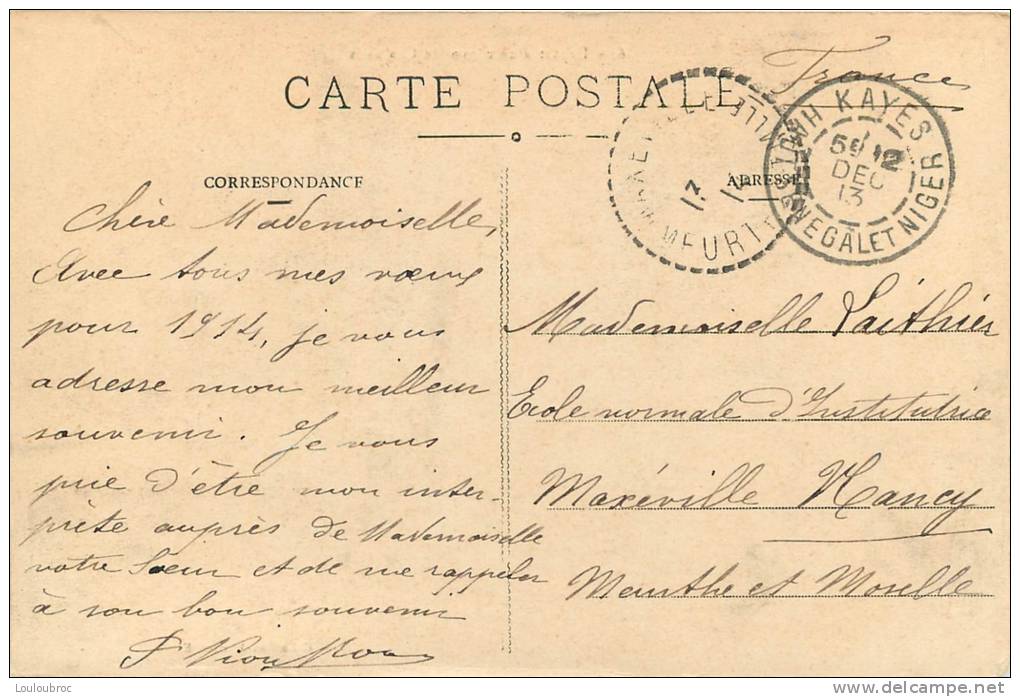 France
CARTE POSTALE
CORRESPONDANCE
ADRESSE
HAUT SENEGAL ET NIGER
KAYES
DEC
13
MEURTHE
17
Chère Mademoiselle,
Avec tous mes vœux
pour 1914, je vous
adresse mon meilleur
souvenir. Je vous
prie d'être mon inter-
prète auprès de Mademoiselle
votre Sœur et de me rappeler
à son bon souvenir
Mademoiselle Laithier
Ecole normale d'Institutrice
Maxéville Nancy
Meurthe et Moselle
Louloubroc
www.delcampe.net